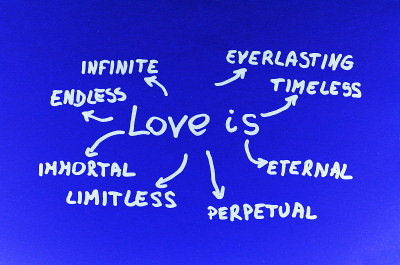 INFINITE
EVERLASTING
ENDLESS
TIMELESS
Love is
IMMORTAL
ETERNAL
LIMITLESS
PERPETUAL